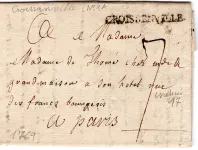 CROISSENVILLE
A Madame
Madame de Thome chez
grandmaison a son hotel rue
des francs bourgeois
a paris
7
1769